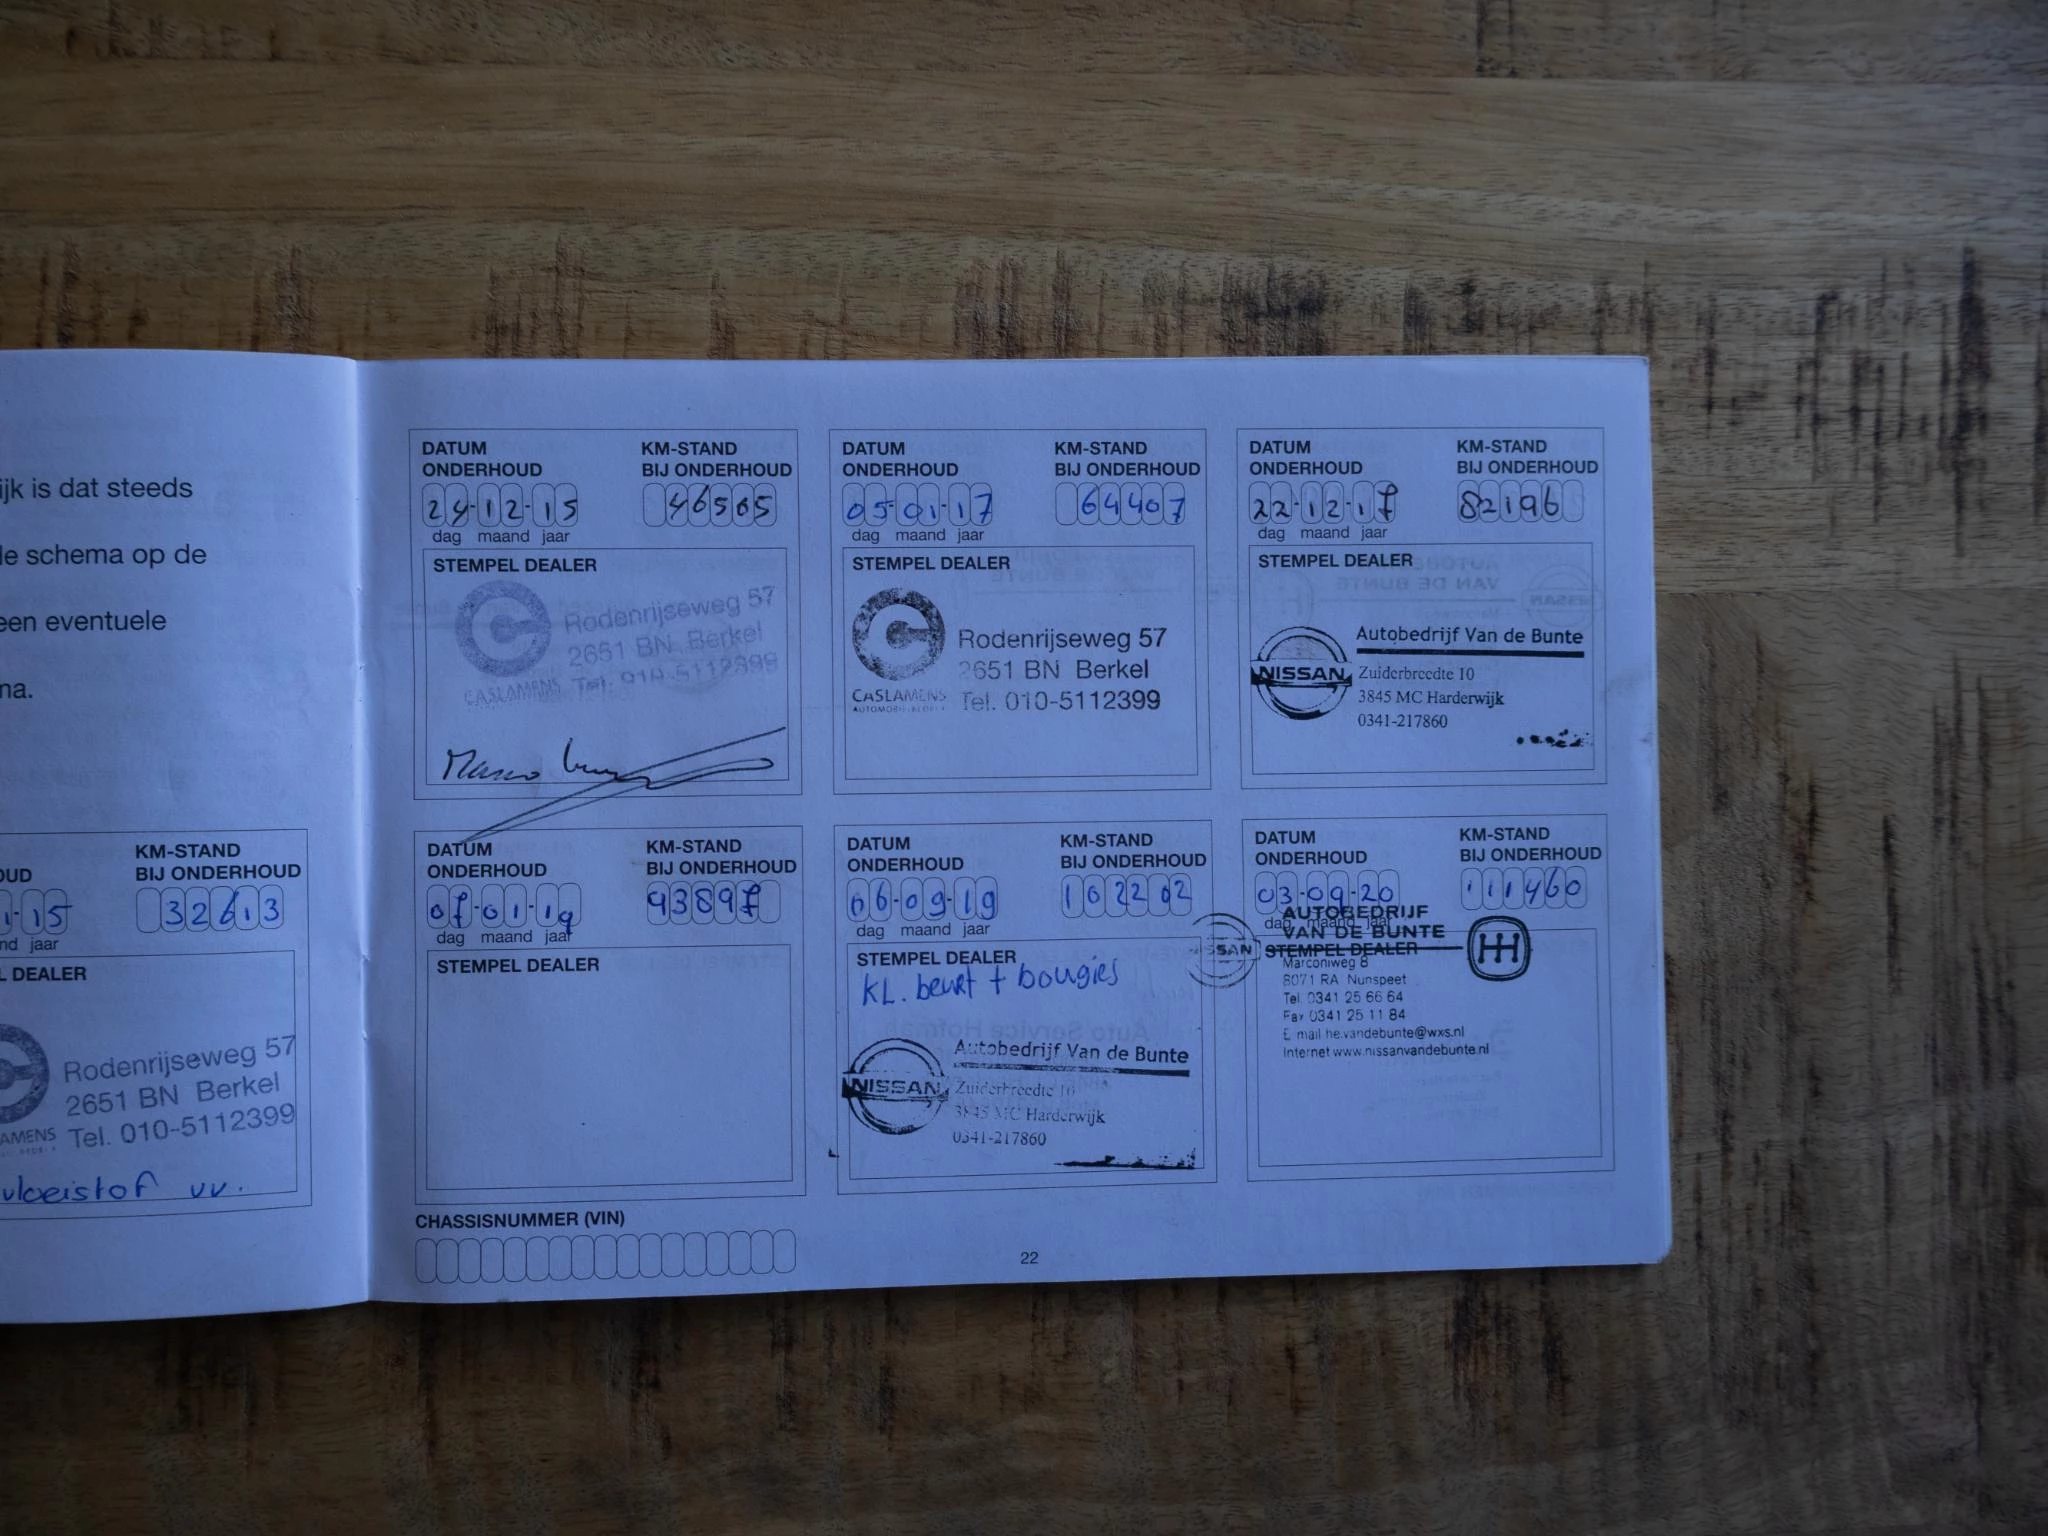 ijk is dat steeds
le schema op de
een eventuele
na.
OUD
KM-STAND
BIJ ONDERHOUD
1-15
32613
nd jaar
L DEALER
Rodenrijseweg 57
2651 BN Berkel
Tel. 010-5112399
AMENS
vloeistof vv.
DATUM
ONDERHOUD
KM-STAND
BIJ ONDERHOUD
24-12-15
46505
dag maand jaar
STEMPEL DEALER
Rodenrijseweg 57
2651 BN Berkel
Tel. 010-5112399
CASLAMENS
DATUM
ONDERHOUD
KM-STAND
BIJ ONDERHOUD
05-01-17
64407
dag maand jaar
STEMPEL DEALER
Rodenrijseweg 57
2651 BN Berkel
Tel. 010-5112399
CASLAMENS
DATUM
ONDERHOUD
KM-STAND
BIJ ONDERHOUD
22-12-17
82196
dag maand jaar
STEMPEL DEALER
NISSAN
Autobedrijf Van de Bunte
Zuiderbreedte 10
3845 MC Harderwijk
0341-217860
DATUM
ONDERHOUD
KM-STAND
BIJ ONDERHOUD
07-01-19
93897
dag maand jaar
STEMPEL DEALER
DATUM
ONDERHOUD
KM-STAND
BIJ ONDERHOUD
06-09-19
102202
dag maand jaar
STEMPEL DEALER
KL. beurt + bougies
NISSAN
Autobedrijf Van de Bunte
Zuiderbreedte 10
3845 MC Harderwijk
0341-217860
DATUM
ONDERHOUD
KM-STAND
BIJ ONDERHOUD
03-09-20
111460
dag maand jaar
STEMPEL DEALER
SSAN
AUTOBEDRIJF
VAN DE BUNTE
Marconiweg 8
8071 RA Nunspeet
Tel. 0341 25 66 64
Fax 0341 25 11 84
E mail he.vandebunte@wxs.nl
Internet www.nissanvandebunte.nl
CHASSISNUMMER (VIN)
22